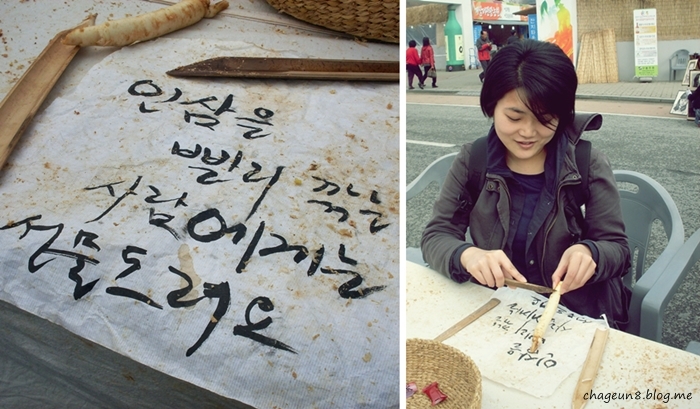 인삼을
빨리 깎는
사람에게는
선물드려요
chageun8.blog.me